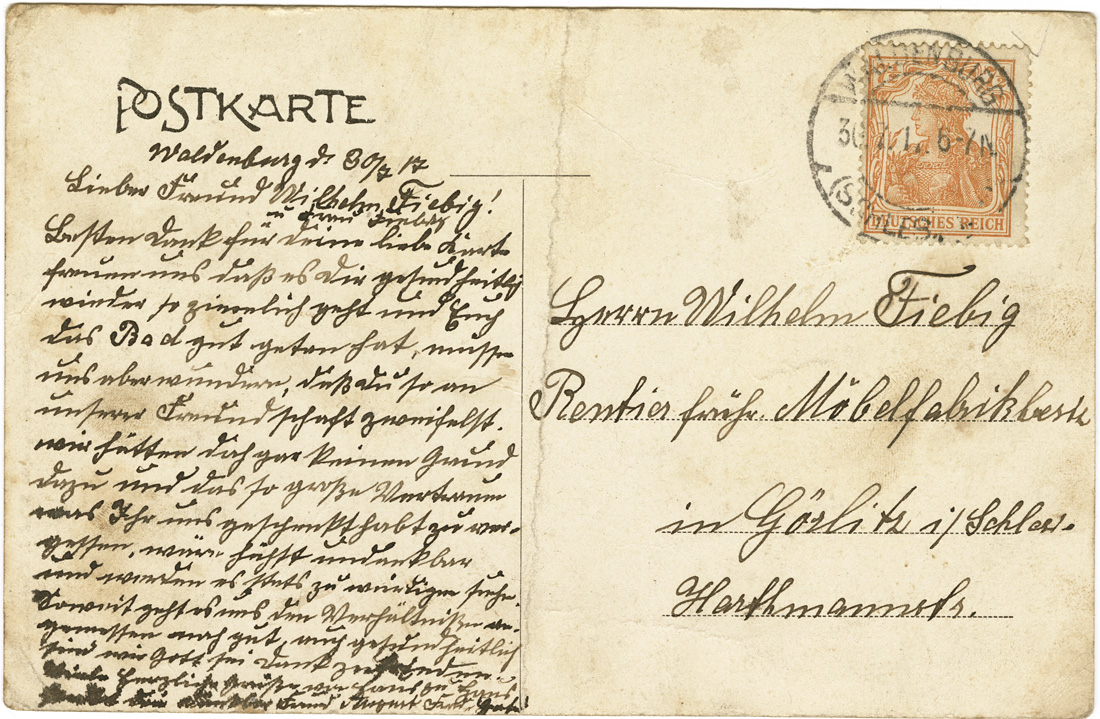 POSTKARTE
Waldenburg d. 30/7 17
Lieber Freund Wilhelm Fiebig!
u Frau Fiebig
Besten Dank für Deine liebe Karte
freuen uns daß es Dir gesundheitlich
wieder so ziemlich geht und Euch
das Bad gut getan hat, müssen
uns aber wundern, daß Du so an
unserer Freundschaft zweifelst.
wir hätten doch gar keinen Grund
dazu und das so große Vertrauen
was Ihr uns geschenkt habt zu ver-
gessen, wäre höchst undankbar
und werden es stets zu würdigen suchen.
Soweit geht es uns den Verhältnißen an-
gemessen noch gut, auch gesundheitlich
sind wir Gott sei Dank zufrieden
Viele herzliche Grüße von Haus zu Haus
August
WALDENBURG
30.7.17. 6-7N
(SCHLES.)
DEUTSCHES REICH
Herrn Wilhelm Fiebig
Rentier früh. Möbelfabrikbesitz
in Görlitz i/Schles.
Harthmannstr.